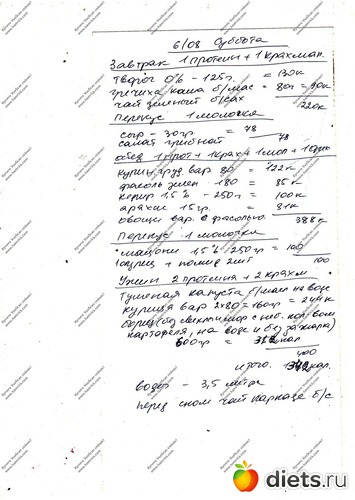 6/08 Суббота
Завтрак 1 протеин + 1 крахмал.
Творог 0% - 125г. = 130к
гречиха каша б/мас = 80г = 90к
чай зеленый б/сах
220к
Перекус 1 молочка
сыр - 30гр. = 78
салат грибной 78
обед 1 прот + 1 крах + 1 мол + 1
куриц. груд. вар 80 = 122к
фасоль зелен 180 = 85к
кефир 1,5% - 250г = 100к
арахис 15гр. = 81к
овощи вар. с фасолью 388к
Перекус 1 молочка
мацони 1,5% 250гр = 100
1 огурец + помид 2шт 100
Ужин 2 протеина + 2 крахм
Тушеная капуста б/масл на воде
курица вар 2х80 = 160гр = 244к
борщ (без свеклы с неб. кол-вом
картофеля, на воде и без зажарки)
600гр =
итого.
вода - 3,5 литра
перед сном чай каркаде б/с
diets.ru